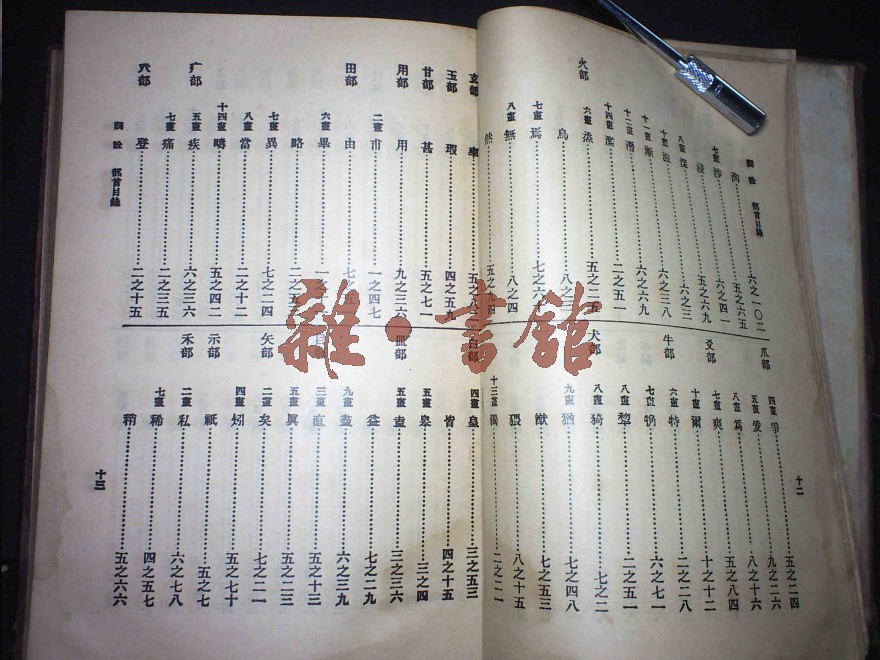 詞詮 部首目錄
洵……六之一〇二
七畫 涉……五之六五
浸……六之四一
八畫 深……五之六九
十畫 滋……六之三
十一畫 漸……六之三八
十二畫 潛……六之六九
十四畫 濫……二之五一
火部
六畫 烝……五之二五
烏……八之三
七畫 焉……七之六
八畫 無……八之四
然……五之
爪部
四畫 爭……五之二四
五畫 爰……九之二六
八畫 爲……八之十六
爻部
七畫 爽……五之八四
十畫 爾……十之十二
牛部
六畫 特……二之二八
七畫……六之七一
八畫 犂……二之五一
犬部
八畫 猗……七之二
九畫 猶……七之四八
猷……七之五三
猥……八之十五
十三畫 獨……二之二一
十二
玄部
率……五之
玉部
瑕……四之五九
甘部
甚……五之七一
用部
用……九之三六
二畫 甫……一之四七
田部
由……七之
六畫 畢……一之
略……二之五
七畫 異……七之二四
八畫 當……二之十二
十四畫 疇……五之四二
疒部
五畫 疾……六之三六
七畫 痛……二之三五
登……二之十五
白部
四畫 皇……三之五三
皆……四之十五
五畫 皋……三之四
皿部
五畫 盍……三之三六
益……七之二九
九畫 盡……六之三九
目部
三畫 直……五之十三
五畫 眞……五之二三
矢部
二畫 矣……七之二一
四畫 矧……五之七十
示部
祇……五之七
禾部
二畫 私……六之七八
七畫 稀……四之五七
稍……五之六六
詞詮 部首目錄
十三
雜·書館